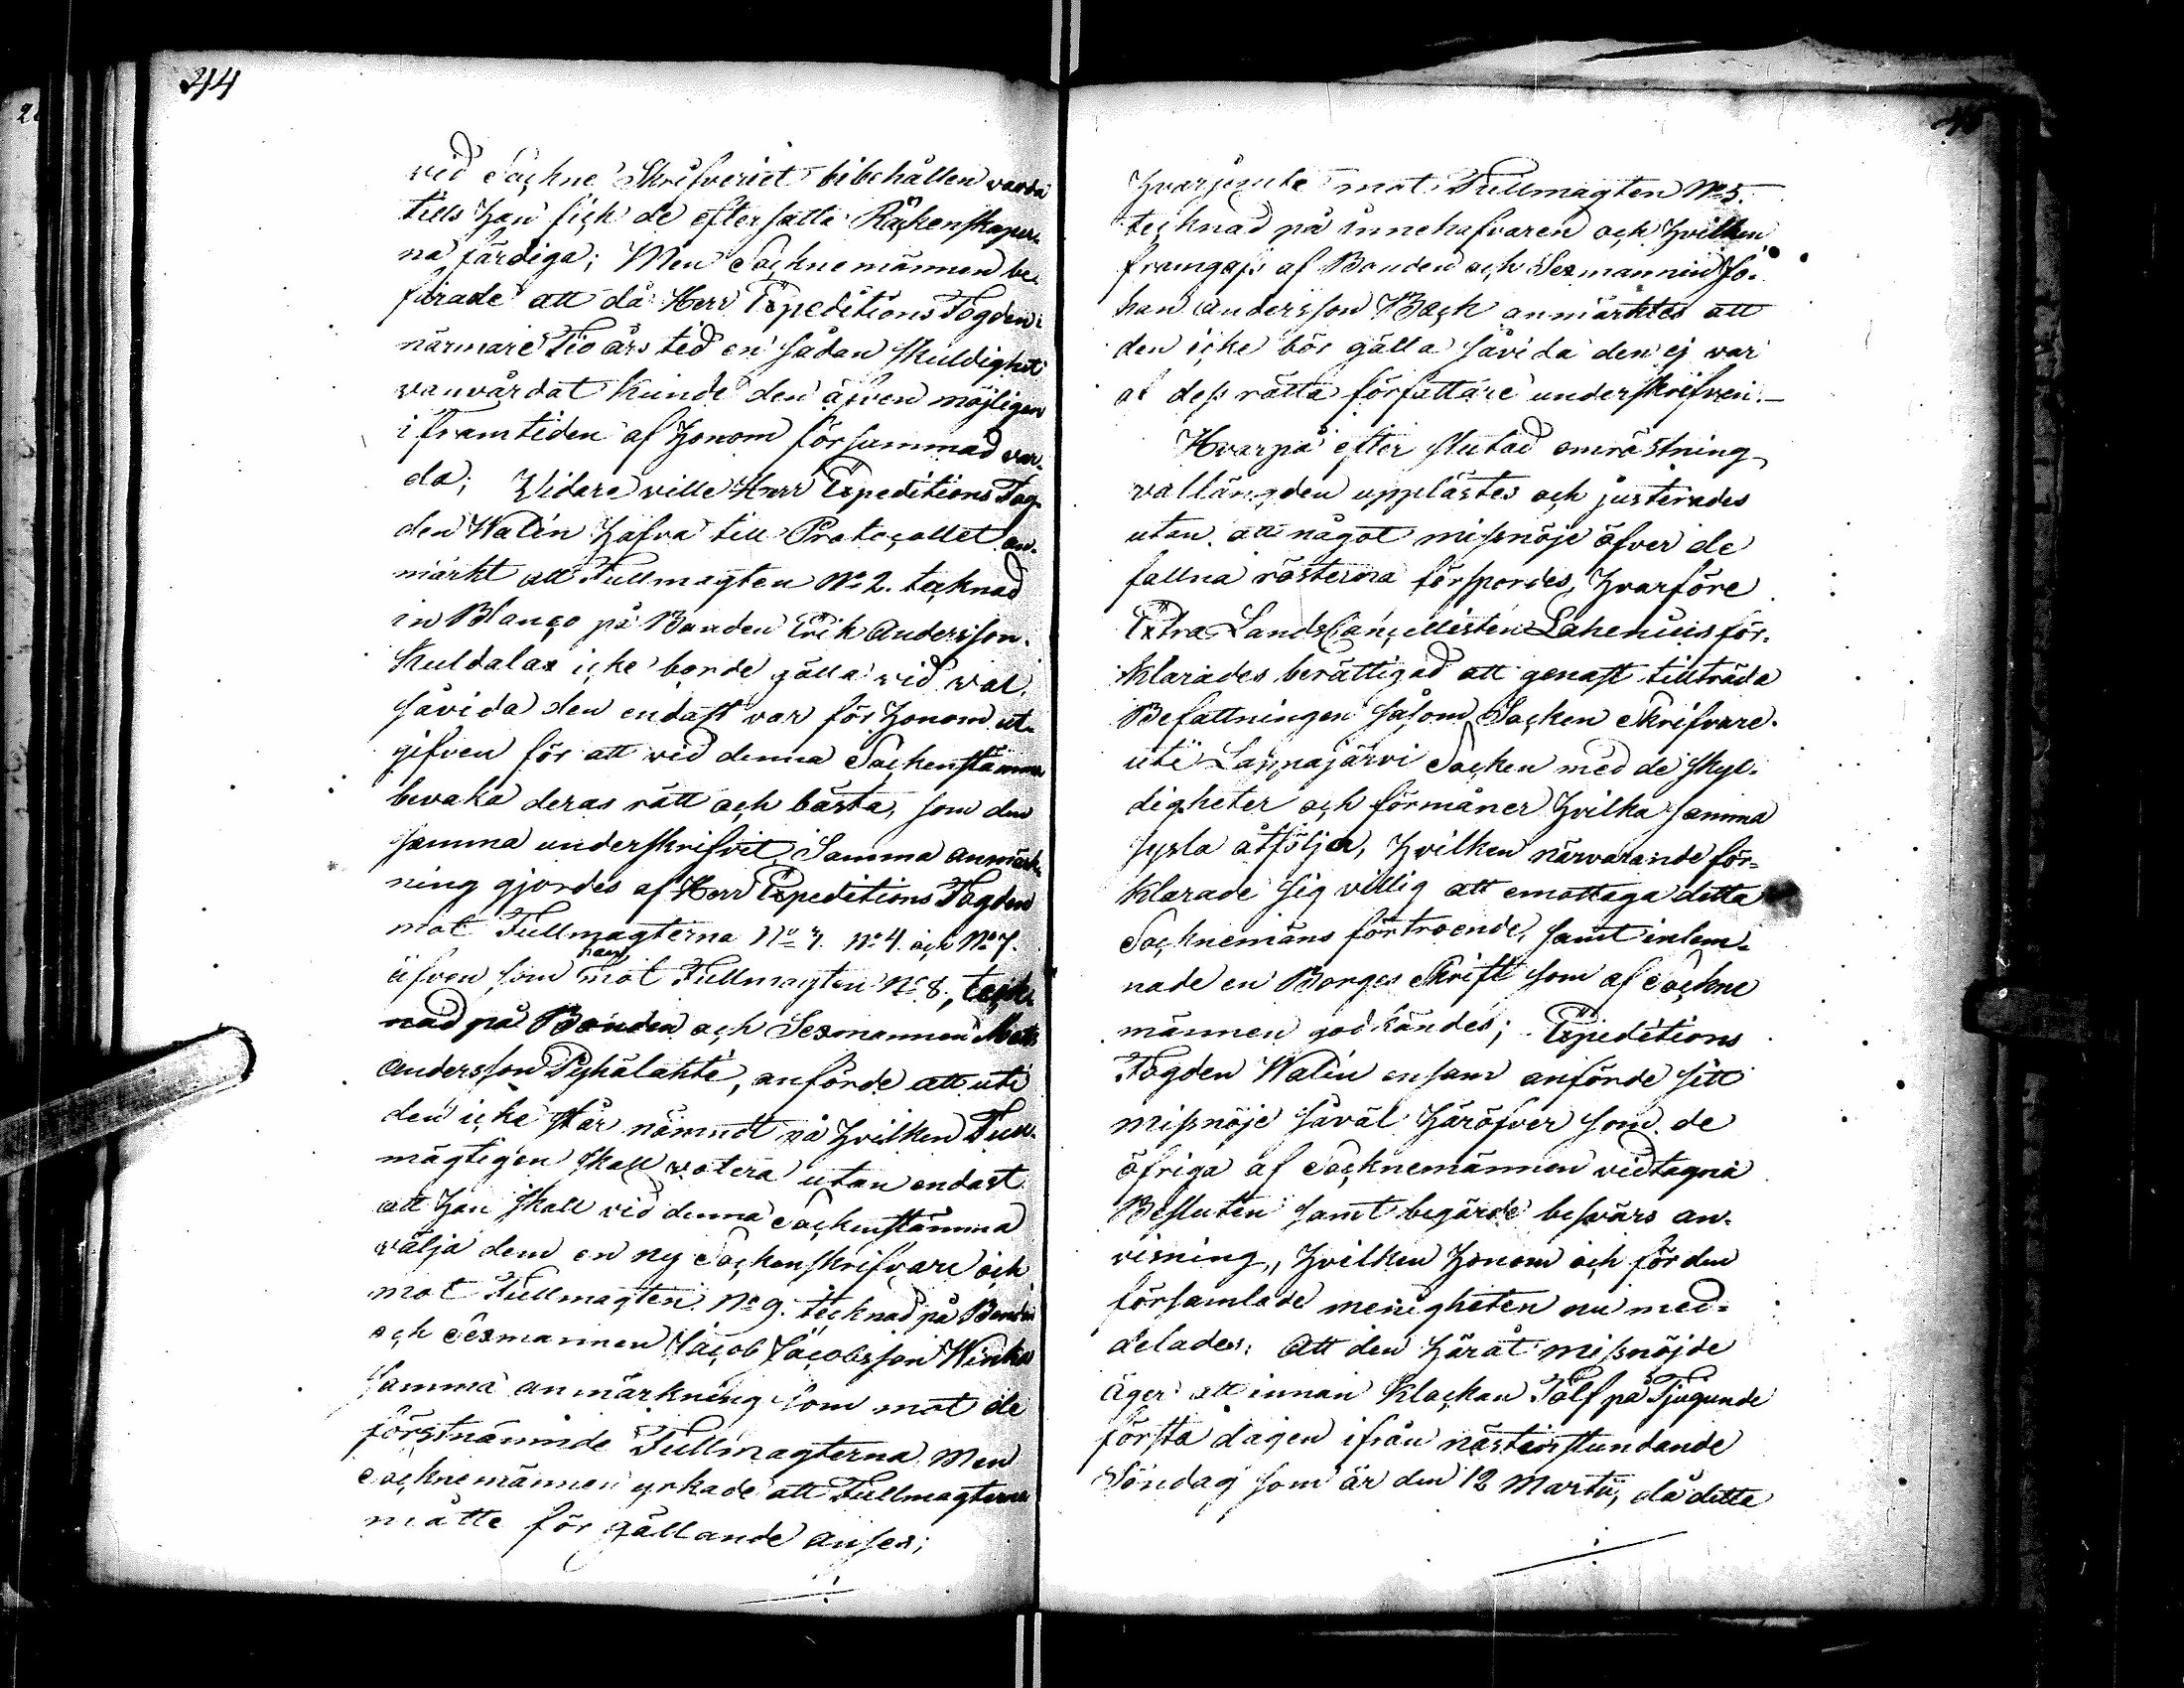 244
vid Sockne Skrifveriet bibehållen varda
tills han fick de eftersatta Räckenskaper-
na färdiga; Men Socknemännen be-
firade att då Herr Expeditions Fogden i
närmare Tio års tid en sådan skuldighet
vanvårdat kunde den äfven möjligen
i framtiden af honom försummad var-
da; Widare ville Herr Expeditions Fog-
den Walin hafva till Protocollet an-
märkt att Fullmagten No 2. tecknad
in Blanco på Bonden Erik Andersson
Kuldalax icke borde gälla vid val,
såvida den endast var för honom ut-
gifven för att vid denna Sockenstämma
bevaka deras rätt och bästa, som den
samma underskrifvit, Samma anmärk-
ning gjordes af Herr Expeditions Fogden
mot Fullmagterna No 3. No 4. och No 7.
äfven som han mot Fullmagten No 8., teck-
nad på Bonden och Sexmannen Matts
Andersson Pyhälahti, anförde att uti
den icke står nämndt på hvilken Full-
mägtigen skall votera utan endast
att han skall vid denna Sockenstämma
välja dem en ny Sockenskrifvare och
mot Fullmagten No 9. tecknad på Bonden
och Sexmannen Jacob Jacobsson Winka
samma anmärkning som mot de
förstnämnde Fullmagterna. Men
Socknemännen yrkade att Fullmagterna
måtte för gällande anses;
Hvarjemte mot Fullmagten No 5.
tecknad på innehafvaren och hvilken
framgafs af Bonden och Sexmannen Jo-
han Andersson Back anmärktes att
den icke bör gälla såvida den ej var
af dess rätta författare underskrifven.
Hvarpå efter slutad omröstning
vallängden upplästes och justerades
utan att något missnöje öfver de
fallna rösterna förspordes, hvarföre
Extra Lands Cancellisten Lakenius för-
klarades berättigad att genast tillträda
Befattningen såsom Socken Skrifvare
uti Lappajärvi Socken med de skyl-
digheter och förmåner hvilka samma
sysla åtfölja, hvilken närvarande för-
klarade sig villig att emottaga detta
Socknemäns förtroende, samt inlem-
nade en Borges Skrift som af Sockne
männen godkändes; Expeditions
Fogden Walin ensam anförde sitt
missnöje såväl häröfver som de
öfriga af Socknemännen vidtagna
Besluten samt begärde besvärs an-
visning, hvilken honom och för den
församlade menigheten nu med-
delades: Att den häråt missnöjde
äger att innan klockan Tolf på Tjugunde
första dagen ifrån nästinstundande
Söndag som är den 12 Martii, då detta